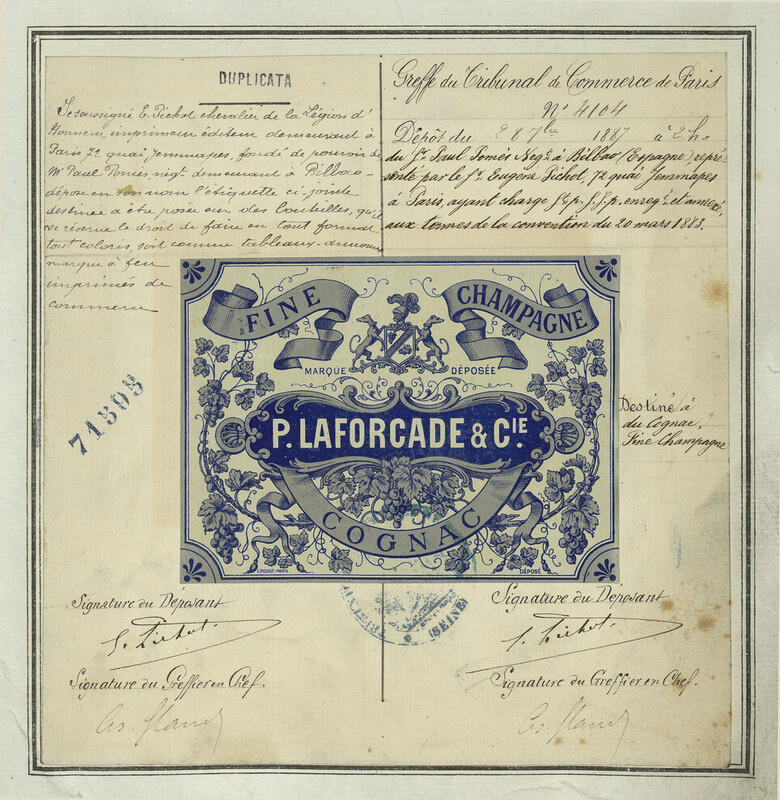 DUPLICATA
Je soussigné E. Pichot chevalier de la Légion d'
Honneur imprimeur éditeur demeurant à
Paris 72 quai Jemmapes, fondé de pouvoir de
Mr Paul Pomès, négt demeurant à Bilbao
dépose en son nom l'étiquette ci-jointe
destinée à être posée sur des bouteilles, qu'il
se réserve le droit de faire en tout format
tout coloris, soit comme tableaux-annonces
marque à feu
imprimés de
commerce
71898
Greffe du Tribunal de Commerce de Paris
No 4104
Dépôt du 28 7bre 1887 à 2h
du Sr. Paul Pomès Negt. à Bilbao (Espagne) repré-
senté par le Sr. Eugène Pichot, 72 quai Jemmapes
à Paris, ayant charge enreg. et annexé,
aux termes de la convention du 20 mars 1883.
FINE CHAMPAGNE
MARQUE DÉPOSÉE
P. LAFORCADE & CIE.
COGNAC
E. PICHOT-PARIS
DÉPOSÉ
Destiné à
du Cognac,
Fine Champagne
Signature du Déposant
E. Pichot
Signature du Greffier en Chef.
(SEINE)
Signature du Déposant
E. Pichot
Signature du Greffier en Chef.